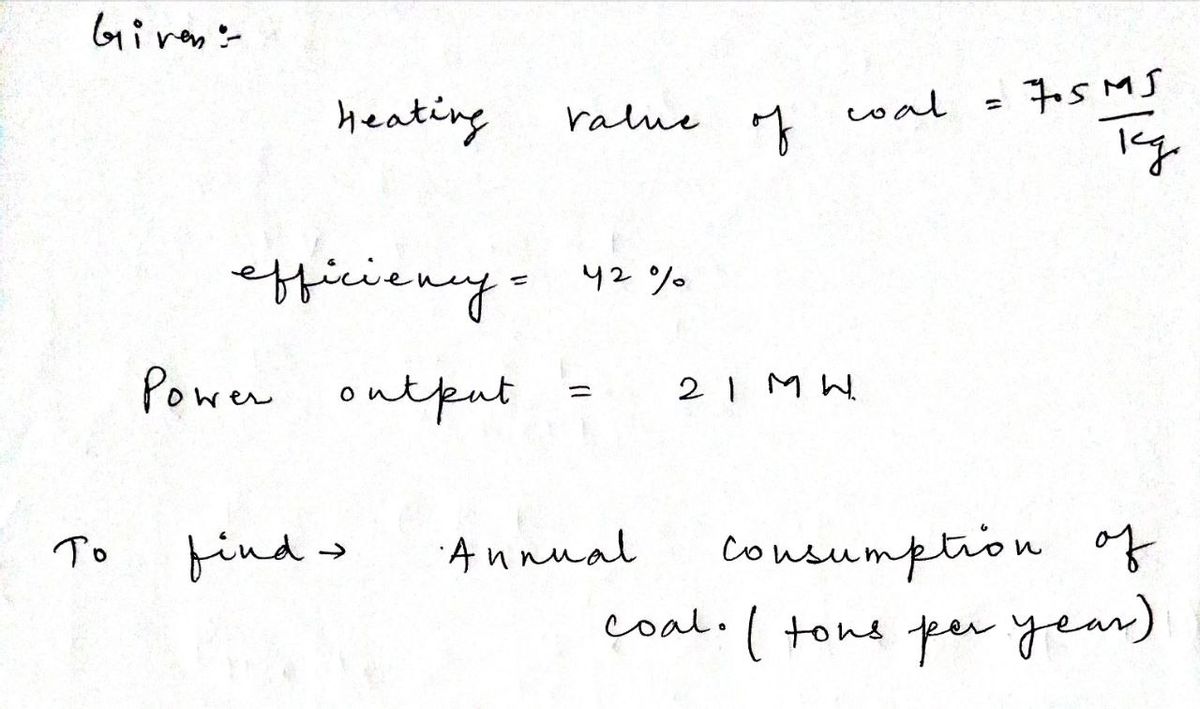 Given :-
Heating value of coal = 7.5 MJ/kg
efficiency = 42 %
Power output = 21 MW.
To find → Annual consumption of
coal. ( tons per year)